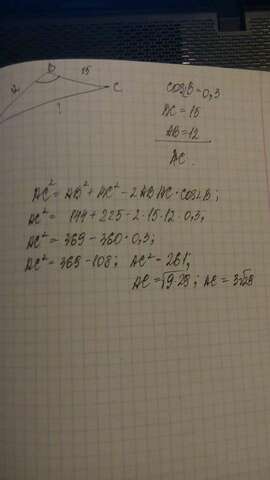 B 15
cosB = 0,3
C
BC = 15
?
AB = 12
AC
AC² = AB² + BC² - 2AB·BC·cosB;
AC² = 144 + 225 - 2·15·12·0,3;
AC² = 369 - 360·0,3;
AC² = 369 - 108; AC² = 261;
AC = √9·29; AC = 3√29